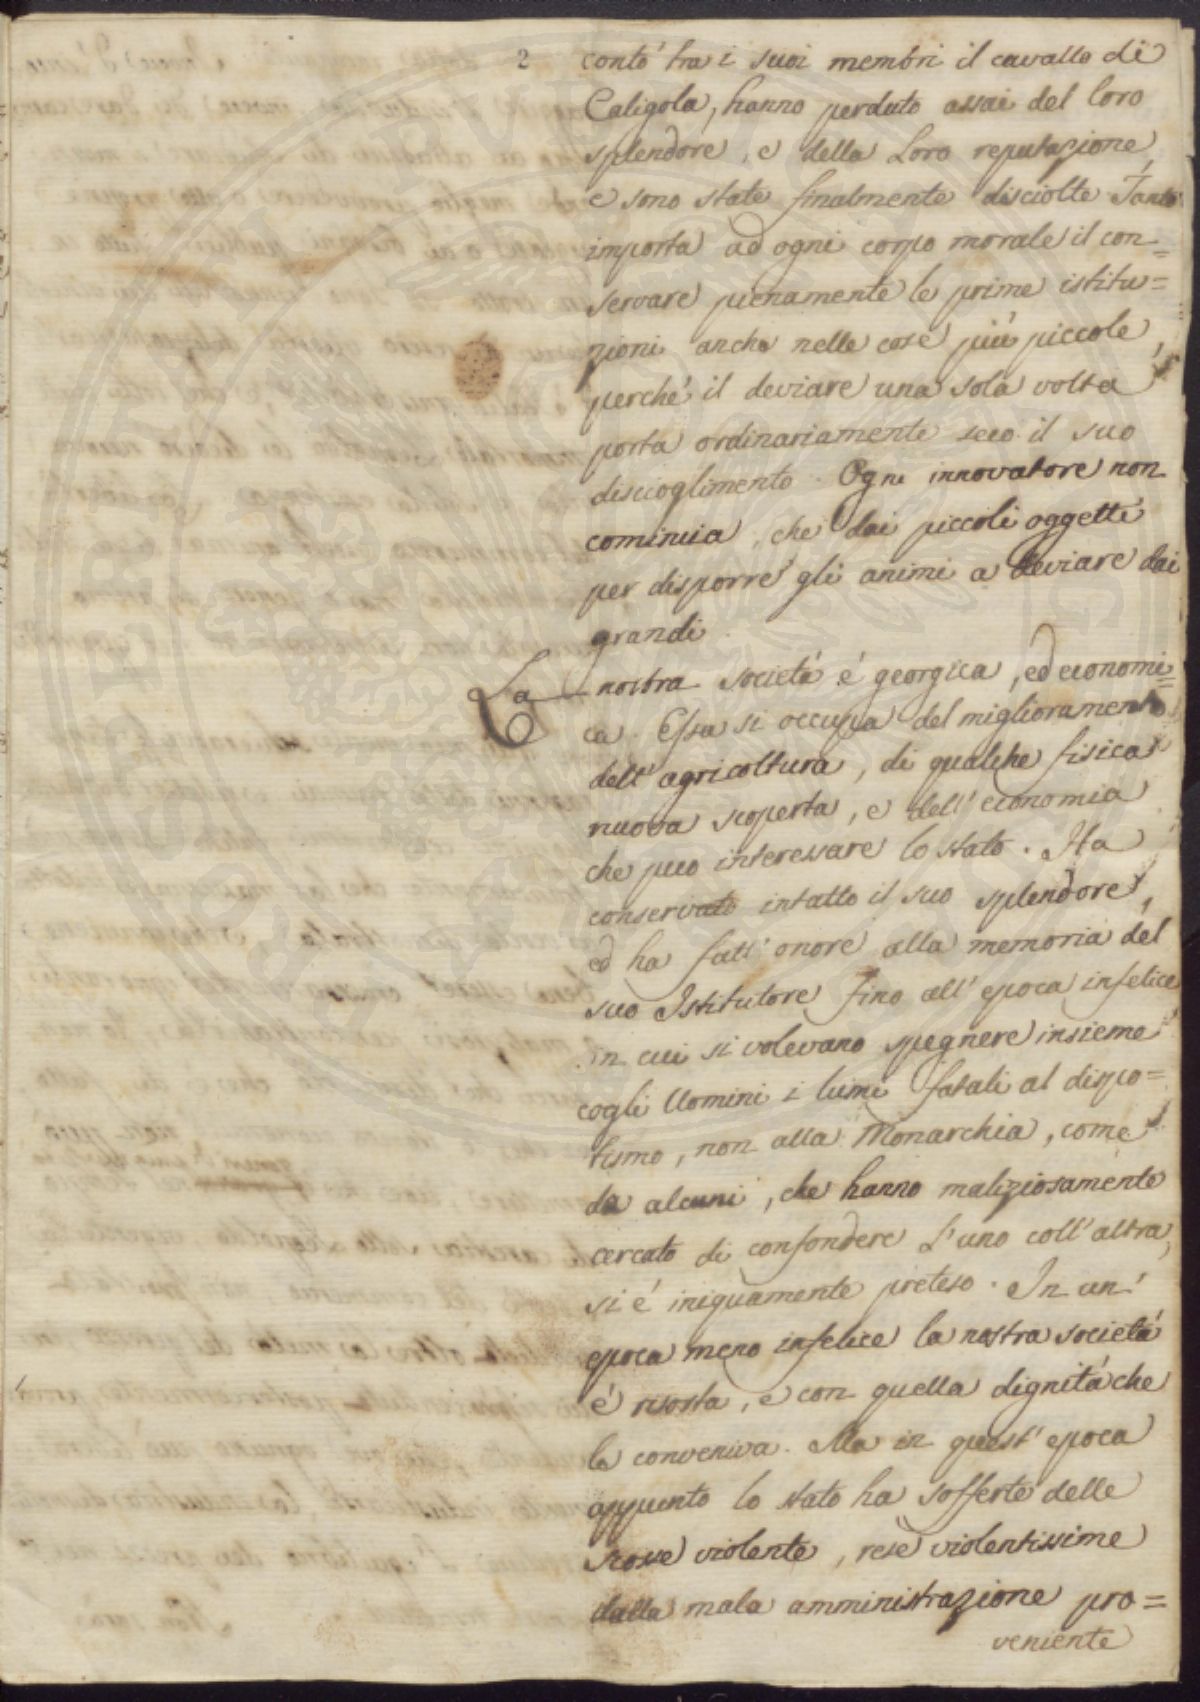 2
contó fra i suoi membri il cavallo di
Caligola, hanno perduto assai del loro
splendore, e della Loro reputazione,
e sono state finalmente disciolte. Tanto
importa ad ogni corpo morale il con=
servare pienamente le prime istitu=
zioni anche nelle cose piú piccole,
perché il deviare una sola volta
porta ordinariamente seco il suo
discioglimento. Ogni innovatore non
comincia, che dai piccoli oggetti
per disporre gli animi a deviare dai
grandi.
La nostra societá é georgica, ed economi=
ca. Essa si occupa del miglioramento
dell' agricoltura, di qualche fisica
nuova scoperta, e dell' economia
che puo interessare lo stato. Ha
conservato intatto il suo splendore,
ed ha fatt' onore alla memoria del
suo Istitutore fino all' epoca infelice
in cui si volevano spegnere insieme
cogli Uomini i lumi fatali al dispo=
tismo, non alla Monarchia, come
da alcuni, che hanno maliziosamente
cercato di confondere l'uno coll' altra,
si é iniquamente preteso. In un'
epoca meno infelice la nostra societá
é risorta, e con quella dignitá che
le conveniva. Ma in quest' epoca
appunto lo stato ha sofferte delle
scosse violente, rese violentissime
dalla mala amministrazione pro=
veniente